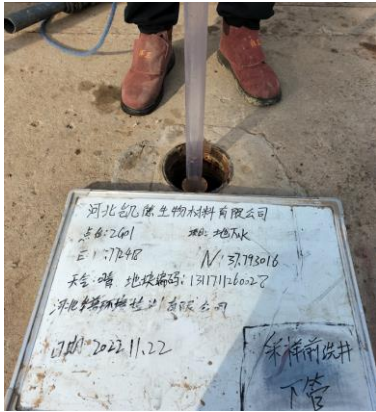 河北凯德生物材料有限公司
点位:2G01 类型:地下水
N:37.793016
天气:晴 地块编码:1311711260027
有限公司
日期 2022.11.22
采样前洗井
下管